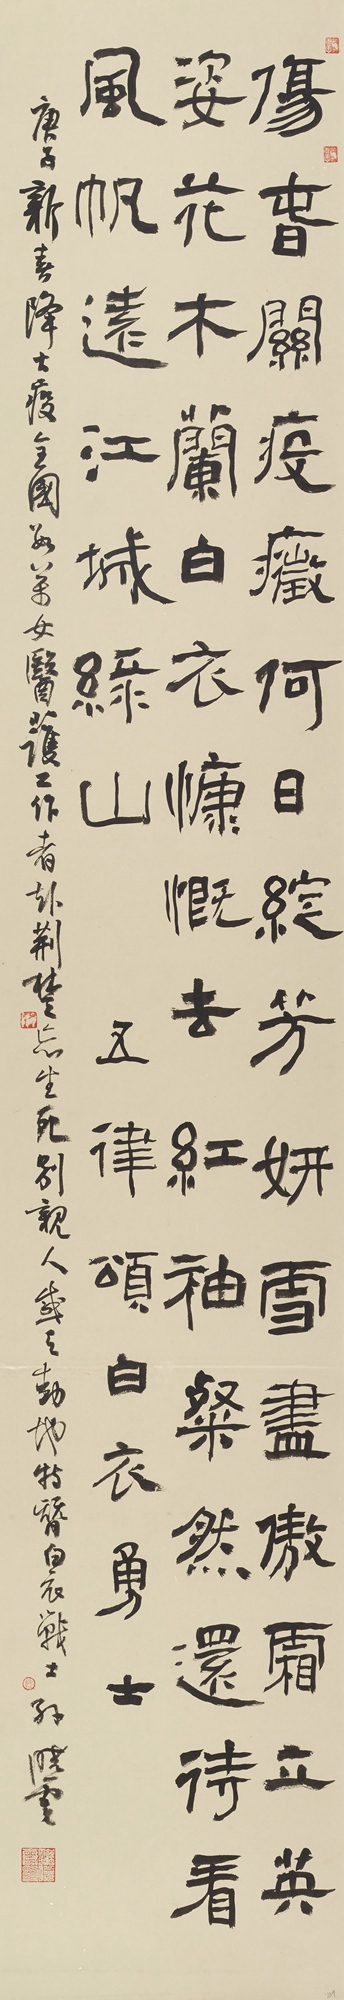 傷旾關疫癥何日綻芳妍雪盡傲霜立英
姿花木蘭白衣慷慨去紅袖粲然還待看
風帆遠江城綠山 五律頌白衣勇士
庚子新春降大疫全國數萬女醫護工作者赴荊楚忘生死別親人感天動地特贊白衣戰士 孫曉雲